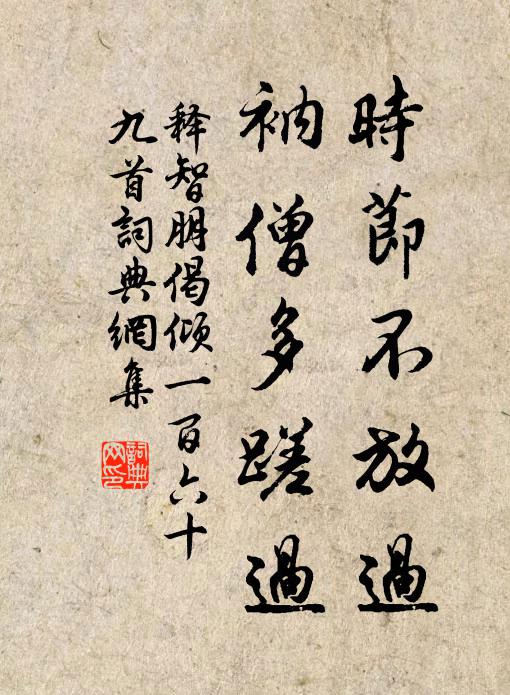 時節不放過
衲僧多蹉過
释智朋偈倾一百六十
九首詞典網集
詞典网印